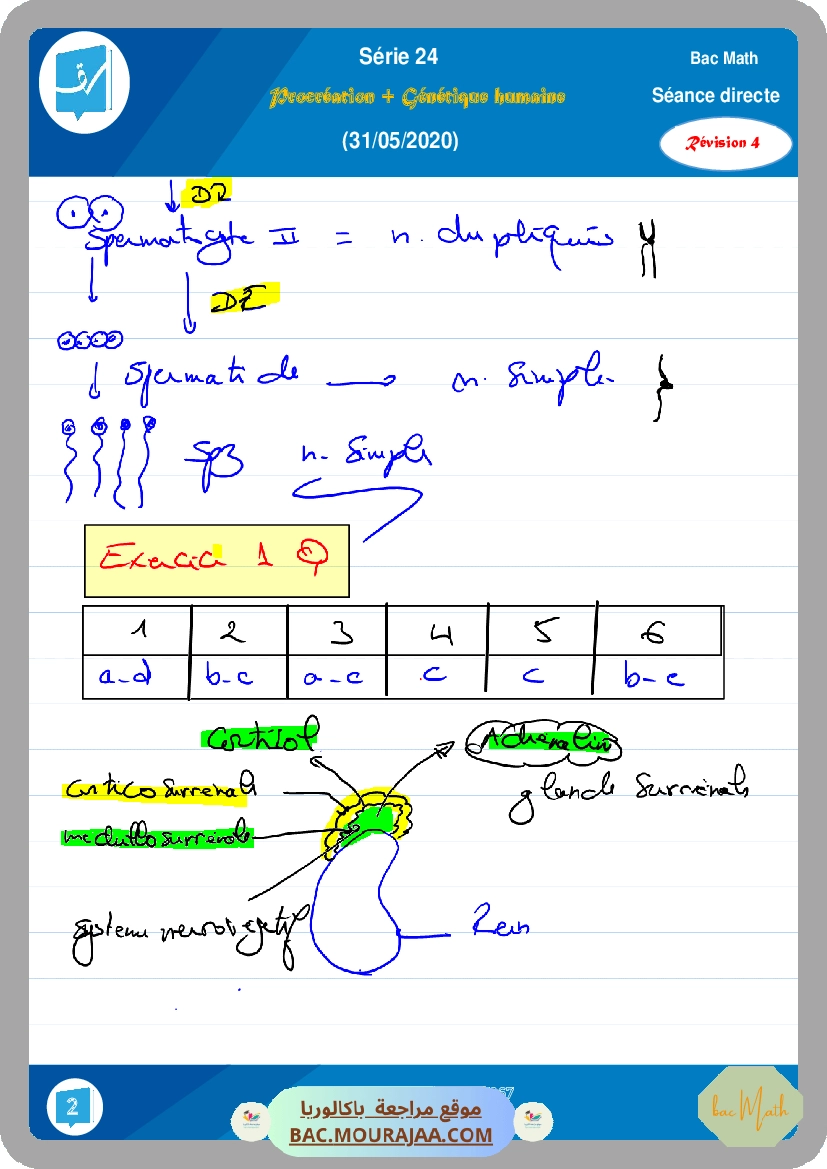 Série 24
Bac Math
Procréation + Génétique humaine
Séance directe
(31/05/2020)
Révision 4
DR
Spermatocyte II = n. dupliqués
DE
Spermatide → n. Simple
spz n- Simple
Exercice 1 Q
1 2 3 4 5 6
a-d b-c a-c c c b-e
Cortisol
Adrénaline
corticosurrénale
glande Surrénale
médullosurrénale
système neurovégétatif
Rein
2
موقع مراجعة باكالوريا
BAC.MOURAJAA.COM
bac Math